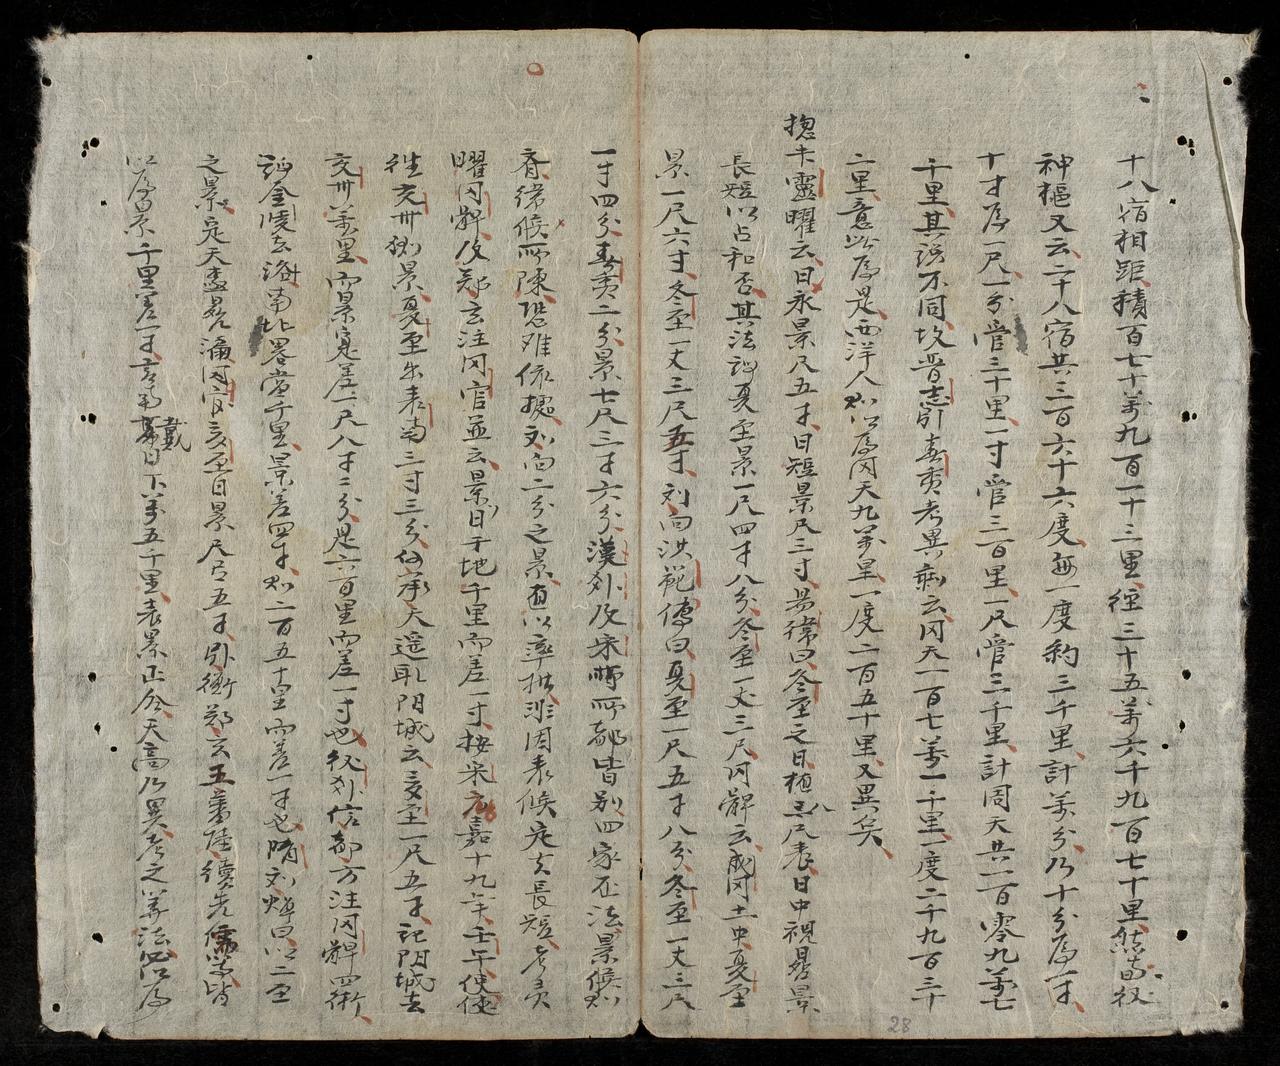 十八宿相距積百七十萬九百一十三里徑三十五萬六千九百七十里
神樞又云二十八宿共三百六十六度每一度約三千里計萬分乃十分為一寸
十寸為一尺一分管三十里一寸管三百里一尺管三千里計周天共一百零九萬七
千里其說不同攷晉志引春秋考異郵云周天一百七萬一千里一度二千九百三十
二里意以為是西洋人則以為周天九萬里一度二百五十里又異矣
揔卡靈曜云日永景尺五寸日短景尺三寸易緯曰冬至之日植八尺表日中視晷景
長短以占和否其法謂夏至景一尺四寸八分冬至一丈三尺周髀云成周土中夏至
景一尺六寸冬至一丈三尺五寸刘向洪範傳曰夏至一尺五寸八分冬至一丈三尺
一寸四分春秋二分景七尺三寸六分漢外及宋時所都皆别四家在法景候則
齊緯候所陳恐难依據刘向二分之景直以率推非因表候定其長短考灵
曜周髀及郑玄注周官並云景日于地千里而差一寸按宋元嘉十九年壬午使使
往交州测景夏至出表南三寸三分何承天遥取阳城云夏至一尺五寸記阳城去
交州萬里而景寔差一尺八寸二分是六百里而差一寸也杖外信都方注周髀四術
謂金陵去海南北畧當千里景差四寸則二百五十里而差一寸也隋刘焯曰以二至
之景定天盡晷漏周官夏至日景尺有五寸張衡郑玄王蕃陸績先儒等皆
以為景千里差一寸言南戴日下萬五千里表景正仝天高乃異考之筭法必以為